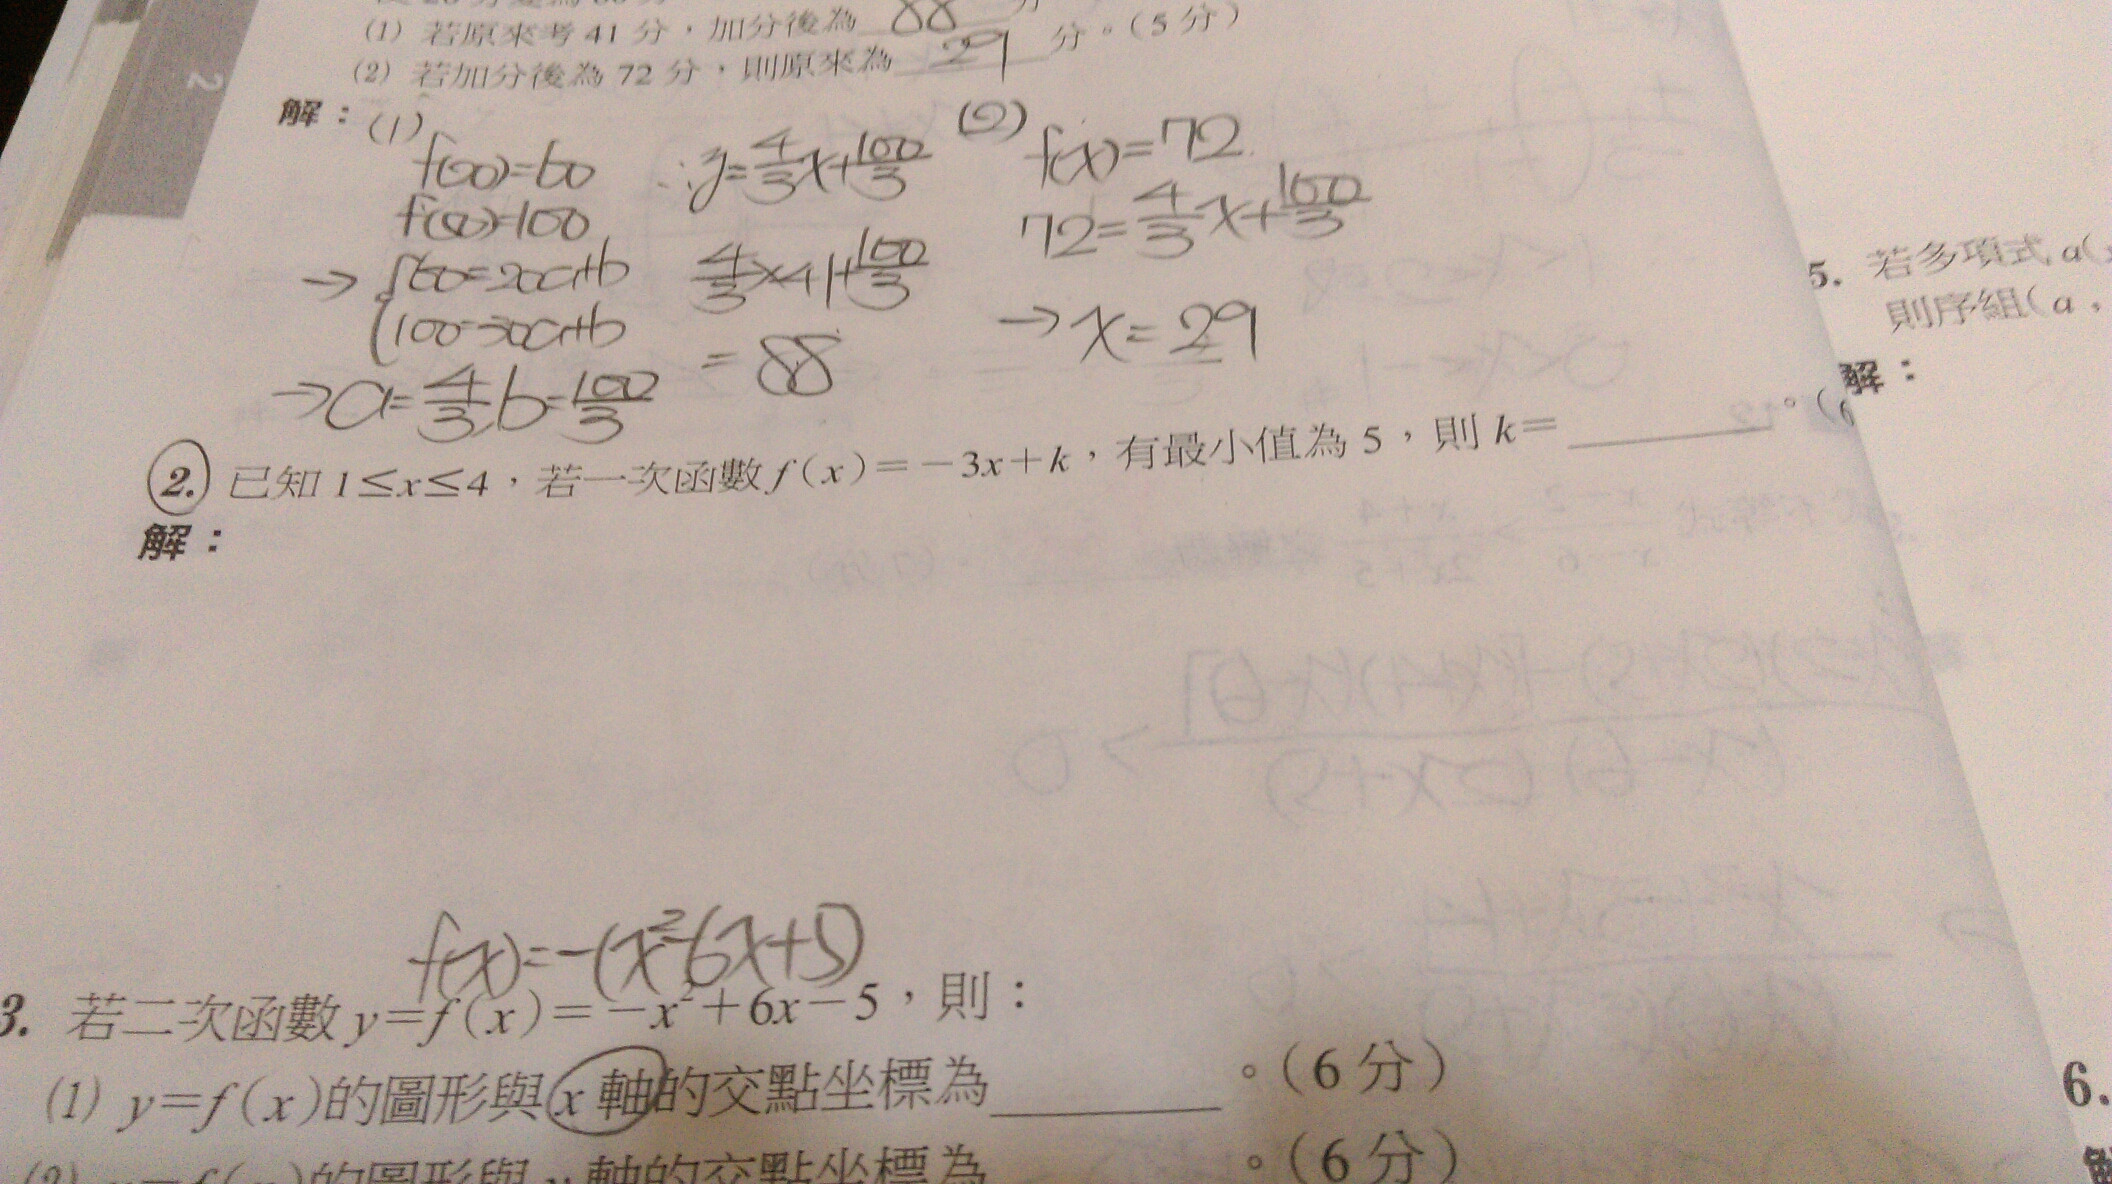 (1) 若原來考 41 分，加分後為 88 分
(2) 若加分後為 72 分，則原來為 29 分。(5 分)
解：(1)
f(20)=60
f(50)=100
→ {60=20a+b
100=50a+b
→a=4/3, b=100/3
∴y=4/3x+100/3
4/3×41+100/3
=88
(2)
f(x)=72
72=4/3x+100/3
→x=29
2. 已知 1≤x≤4，若一次函數 f(x)=−3x+k，有最小值為 5，則 k=______。(
解：
f(x)=-(x²-6x+5)
3. 若二次函數 y=f(x)=−x²+6x−5，則：
(1) y=f(x)的圖形與 x 軸的交點坐標為______。(6 分)
的圖形與 y 軸的交點坐標為______。(6 分)
5. 若多項式 a(
則序組(a，
解：
6.